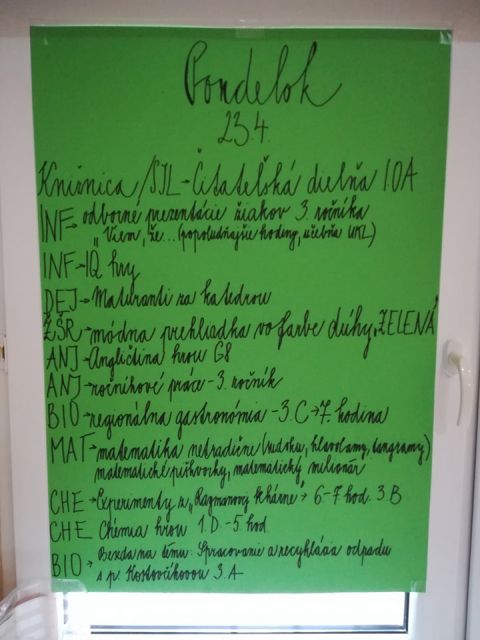 Pondelok
23.4.
Knižnica /SJL - Čitateľská dielňa I.OA
INF → odborné prezentácie žiakov 3. ročníka
"Viem, že... (popoludňajšie hodiny, učebňa UKL)
INF → IQ hry
DEJ → Maturanti za katedrou
ŽŠR → módna prehliadka vo farbe dúhy "ZELENÁ"
ANJ → Angličtina hrou G8
ANJ → ročníkové práce - 3. ročník
BIO → regionálna gastronómia - 3.C → 7. hodina
MAT → matematika netradične (sudoku, hlavolamy, tangramy)
matematické piškvorky, matematický milionár
CHE → Experimenty z "Raymanovej" 6-7 hod. 3.B
CHE Chémia hrou 1.D. - 5. hod
BIO → Beseda na tému: Spracovanie a recyklácia odpadu
s p. 3.A